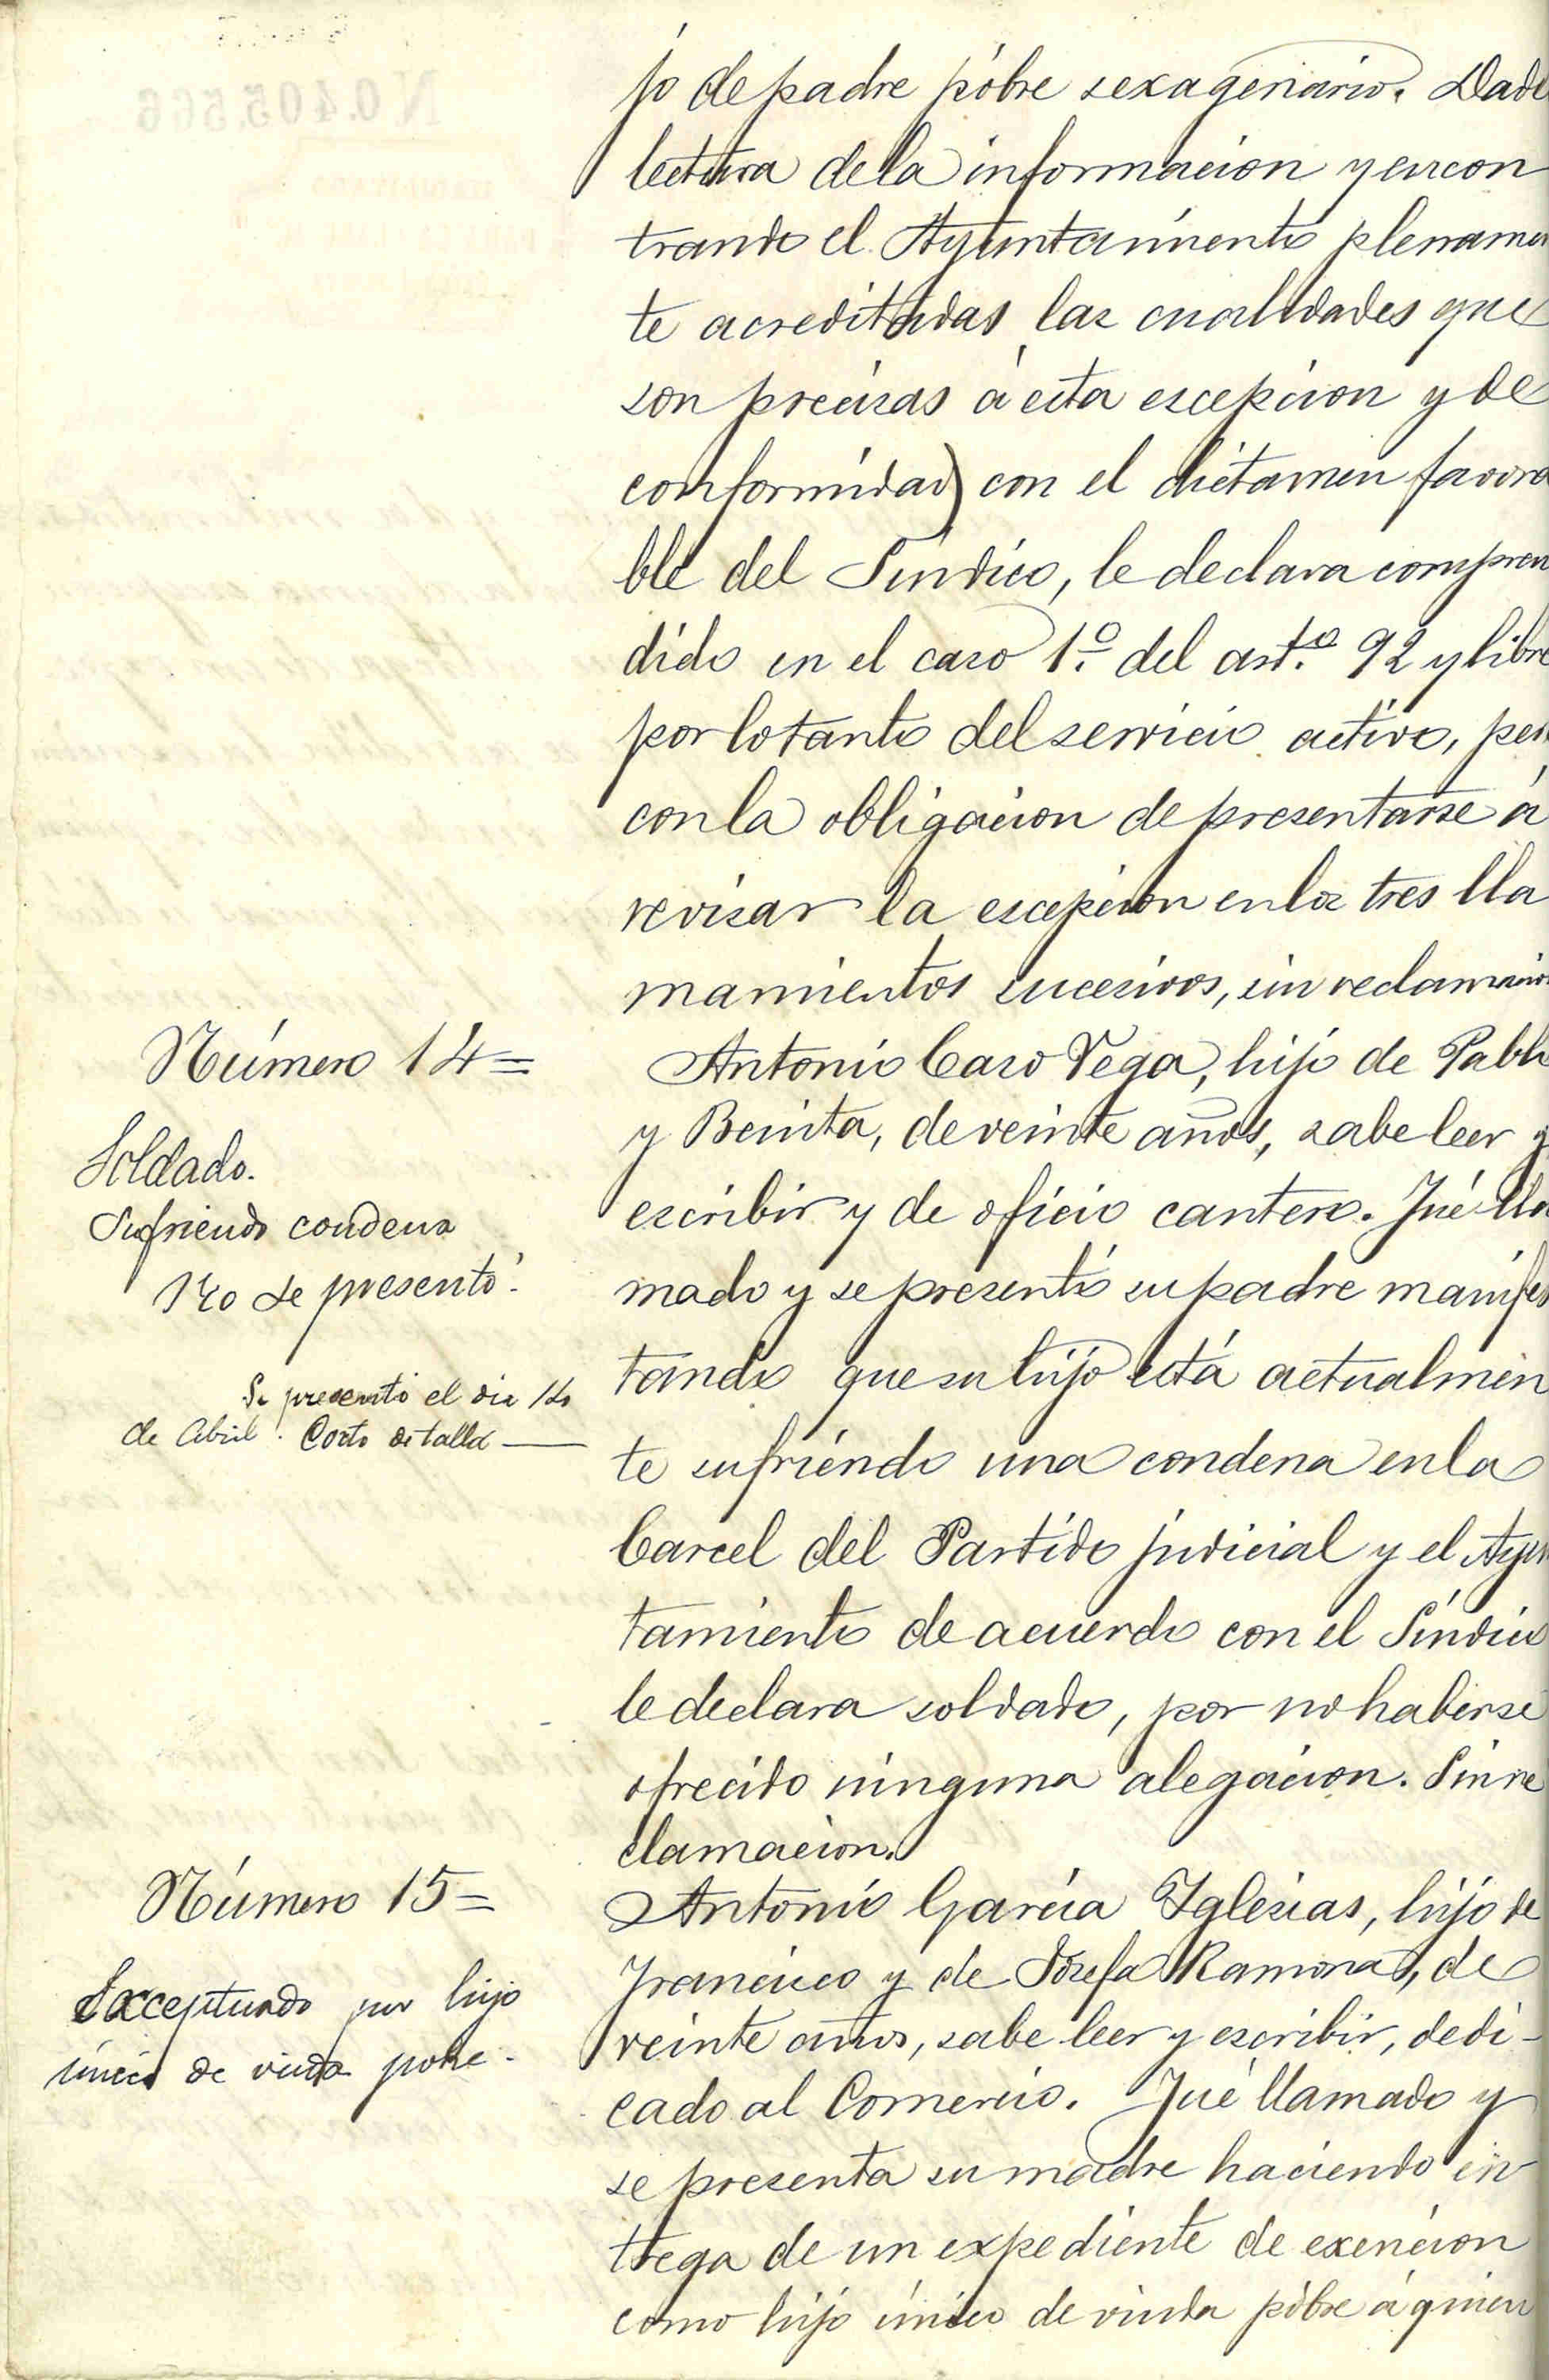 jo de padre pobre sexagenario. Dade
lectura de la informacion y encon
trando el Ayuntamiento plenamen
te acreditadas las cualidades que
son precisas á esta escepcion y de
conformidad con el dictamen favora
ble del Sindico, le declara compren
dido en el caso 1.º del art.º 92 y libre
por lo tanto del servicio activo, pero
con la obligacion de presentarse á
revisar la escepcion en los tres lla
mamientos sucesivos, sin reclamacion
Número 14=
Soldado.
Sufriendo condena
No se presentó.
Se presentó el dia 14
de Abril. Corto de talla —
Antonio Caso Vega, hijo de Pablo
y Benita, de veinte años, sabe leer y
escribir y de oficio cantero. Fué lla
mado y se presentó su padre manifes
tando que su hijo está actualmen
te sufriendo una condena en la
Carcel del Partido judicial y el Ayun
tamiento de acuerdo con el Síndico
le declara soldado, por no haberse
ofrecido ninguna alegacion. Sin re
clamacion.
Número 15=
Exceptuado por hijo
único de viuda pobre.
Antonio García Iglesias, hijo de
Francisco y de Josefa Ramona, de
veinte años, sabe leer y escribir, dedi-
cado al Comercio. Fué llamado y
se presenta su madre haciendo en
trega de un expediente de exencion
como hijo único de viuda pobre á quien